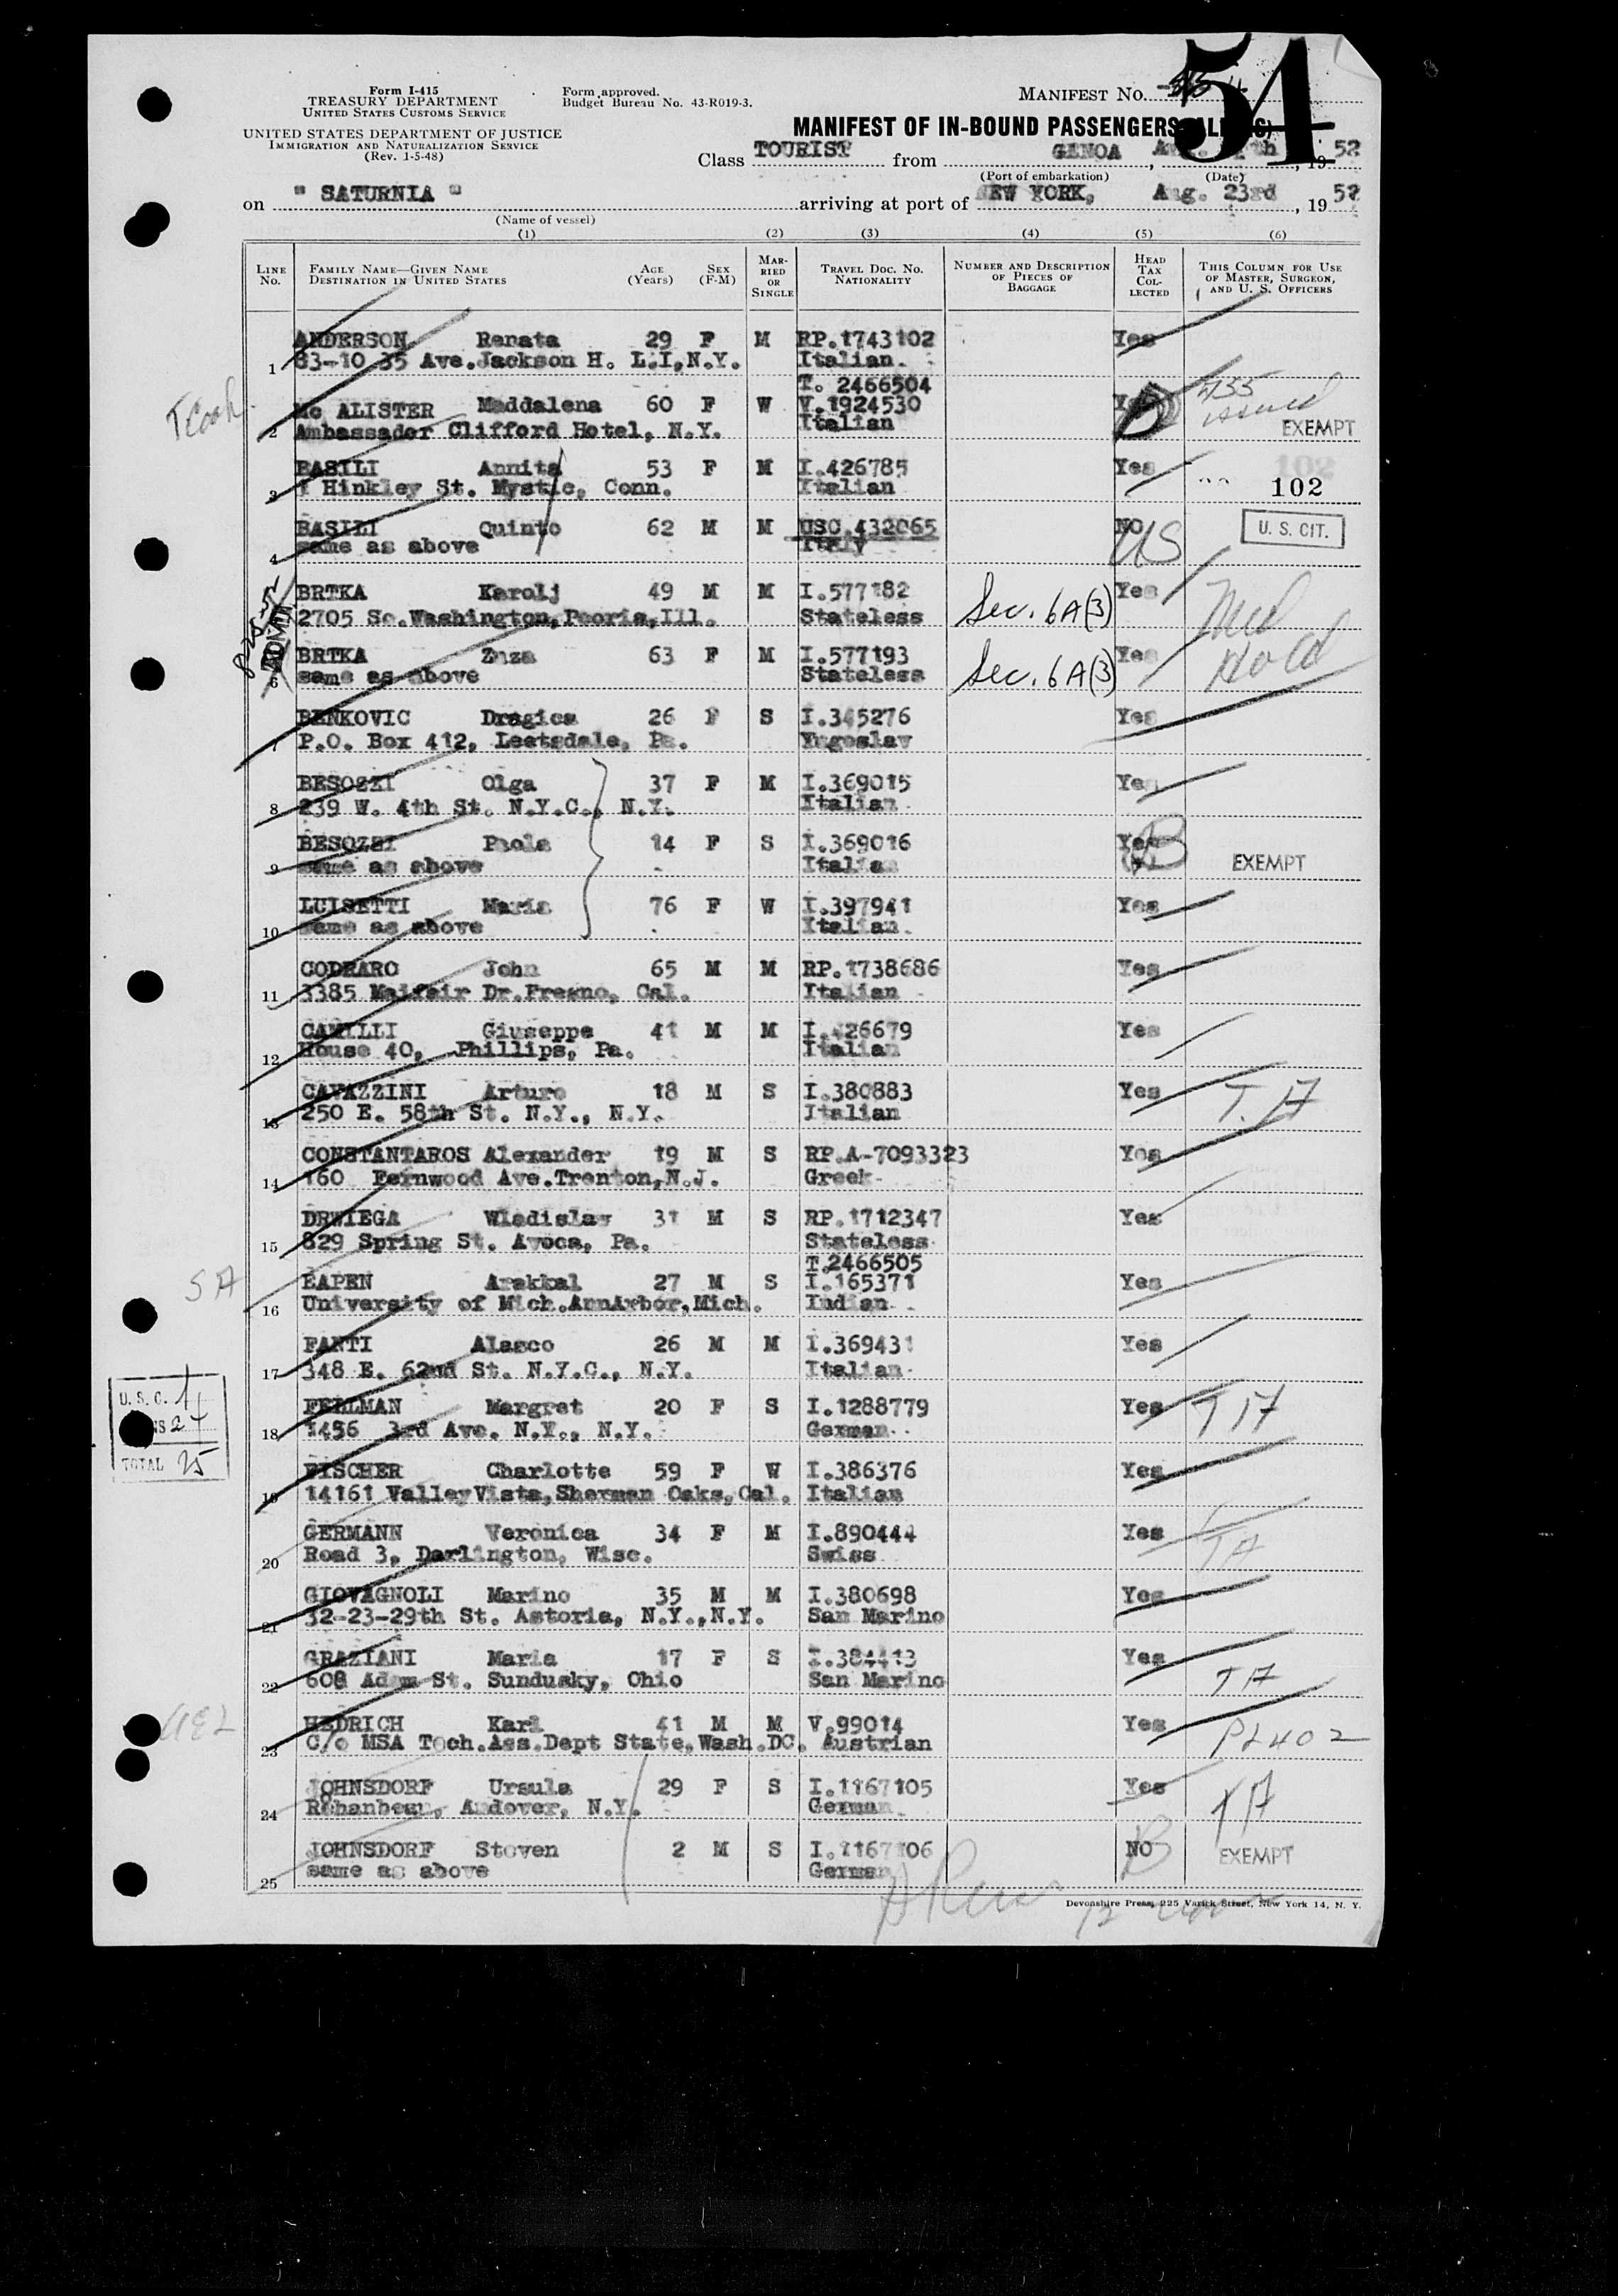 54
Form I-415
TREASURY DEPARTMENT
UNITED STATES CUSTOMS SERVICE
UNITED STATES DEPARTMENT OF JUSTICE
IMMIGRATION AND NATURALIZATION SERVICE
(Rev. 1-5-48)
Form approved.
Budget Bureau No. 43-R019-3.
MANIFEST NO.
MANIFEST OF IN-BOUND PASSENGERS
Class TOURIST from GENOA, 19 52
(Port of embarkation) (Date)
on " SATURNIA " arriving at port of NEW YORK, Aug. 23rd, 19 52
(Name of vessel)
(1) (2) (3) (4) (5) (6)
LINE NO. FAMILY NAME—GIVEN NAME DESTINATION IN UNITED STATES AGE (YEARS) SEX (F-M) MARRIED OR SINGLE TRAVEL DOC. NO. NATIONALITY NUMBER AND DESCRIPTION OF PIECES OF BAGGAGE HEAD TAX COLLECTED THIS COLUMN FOR USE OF MASTER, SURGEON, AND U. S. OFFICERS
ANDERSON Renata 29 F M RP.1743102 Yes
1 83-10 35 Ave.Jackson H. L.I,N.Y. Italian.
T. 2466504
Mc ALISTER Maddalena 60 F W V.1924530 issued
2 Ambassador Clifford Hotel, N.Y. Italian EXEMPT
BASILI Annita 53 F M I.426785 Yes
3 1 Hinkley St. Mystic, Conn. Italian 102
BASILI Quinto 62 M M USC.432065 NO US U. S. CIT.
4 same as above Italy
BRTKA Karolj 49 M M I.577182 Sec. 6A(3) Yes Med
2705 So.Washington,Peoria,Ill. Stateless
ADMIT
BRTKA Zuza 63 F M I.577193 Sec. 6A(3) Yes Hold
6 same as above Stateless
BENKOVIC Dragica 26 F S I.345276 Yes
7 P.O. Box 412, Leetsdale, Pa. Yugoslav
BESOZZI Olga 37 F M I.369015 Yes
8 239 W. 4th St. N.Y.C., N.Y. Italian.
BESOZZI Paola 14 F S I.369016 Yes
9 same as above Italian EXEMPT
LUISETTI Maria 76 F W I.397941 Yes
10 same as above Italian.
CODRARO John 65 M M RP.1738686 Yes
11 3385 Maifair Dr.Fresno, Cal. Italian
CAMILLI Giuseppe 41 M M I.426679 Yes
12 House 40, Phillips, Pa. Italian
CAVAZZINI Arturo 18 M S I.380883 Yes
13 250 E. 58th St. N.Y., N.Y. Italian
CONSTANTAROS Alexander 19 M S RP.A-7093323 Yes
14 160 Fernwood Ave.Trenton,N.J. Greek
DRWIEGA Wladislaw 31 M S RP.1712347 Yes
15 829 Spring St. Avoca, Pa. Stateless
T.2466505
EAPEN Arakkal 27 M S I.165371 Yes
16 University of Mich.AnnArbor,Mich. Indian
FANTI Alasco 26 M M I.369431 Yes
17 348 E. 62nd St. N.Y.C., N.Y. Italian
FELLMAN Margret 20 F S I.1288779 Yes
18 1456 3rd Ave. N.Y., N.Y. German
FISCHER Charlotte 59 F W I.386376 Yes
19 14161 ValleyVista,Sherman Oaks,Cal. Italian
GERMANN Veronica 34 F M I.890444 Yes
20 Road 3, Darlington, Wisc. Swiss
GIOVAGNOLI Marino 35 M M I.380698 Yes
21 32-23-29th St. Astoria, N.Y.,N.Y. San Marino
GRAZIANI Maria 17 F S I.384413 Yes
22 608 Adam St. Sundusky, Ohio San Marino
HEDRICH Karl 41 M M V.99014 Yes PL402
23 C/o MSA Tech.Ass.Dept State,Wash.DC. Austrian
JOHNSDORF Ursula 29 F S I.1167105 Yes
24 Andover, N.Y. German
JOHNSDORF Steven 2 M S I.1167106 NO EXEMPT
25 same as above German
U. S. C. 1
TOTAL 25
Devonshire Press, 225 Varick Street, New York 14, N. Y.